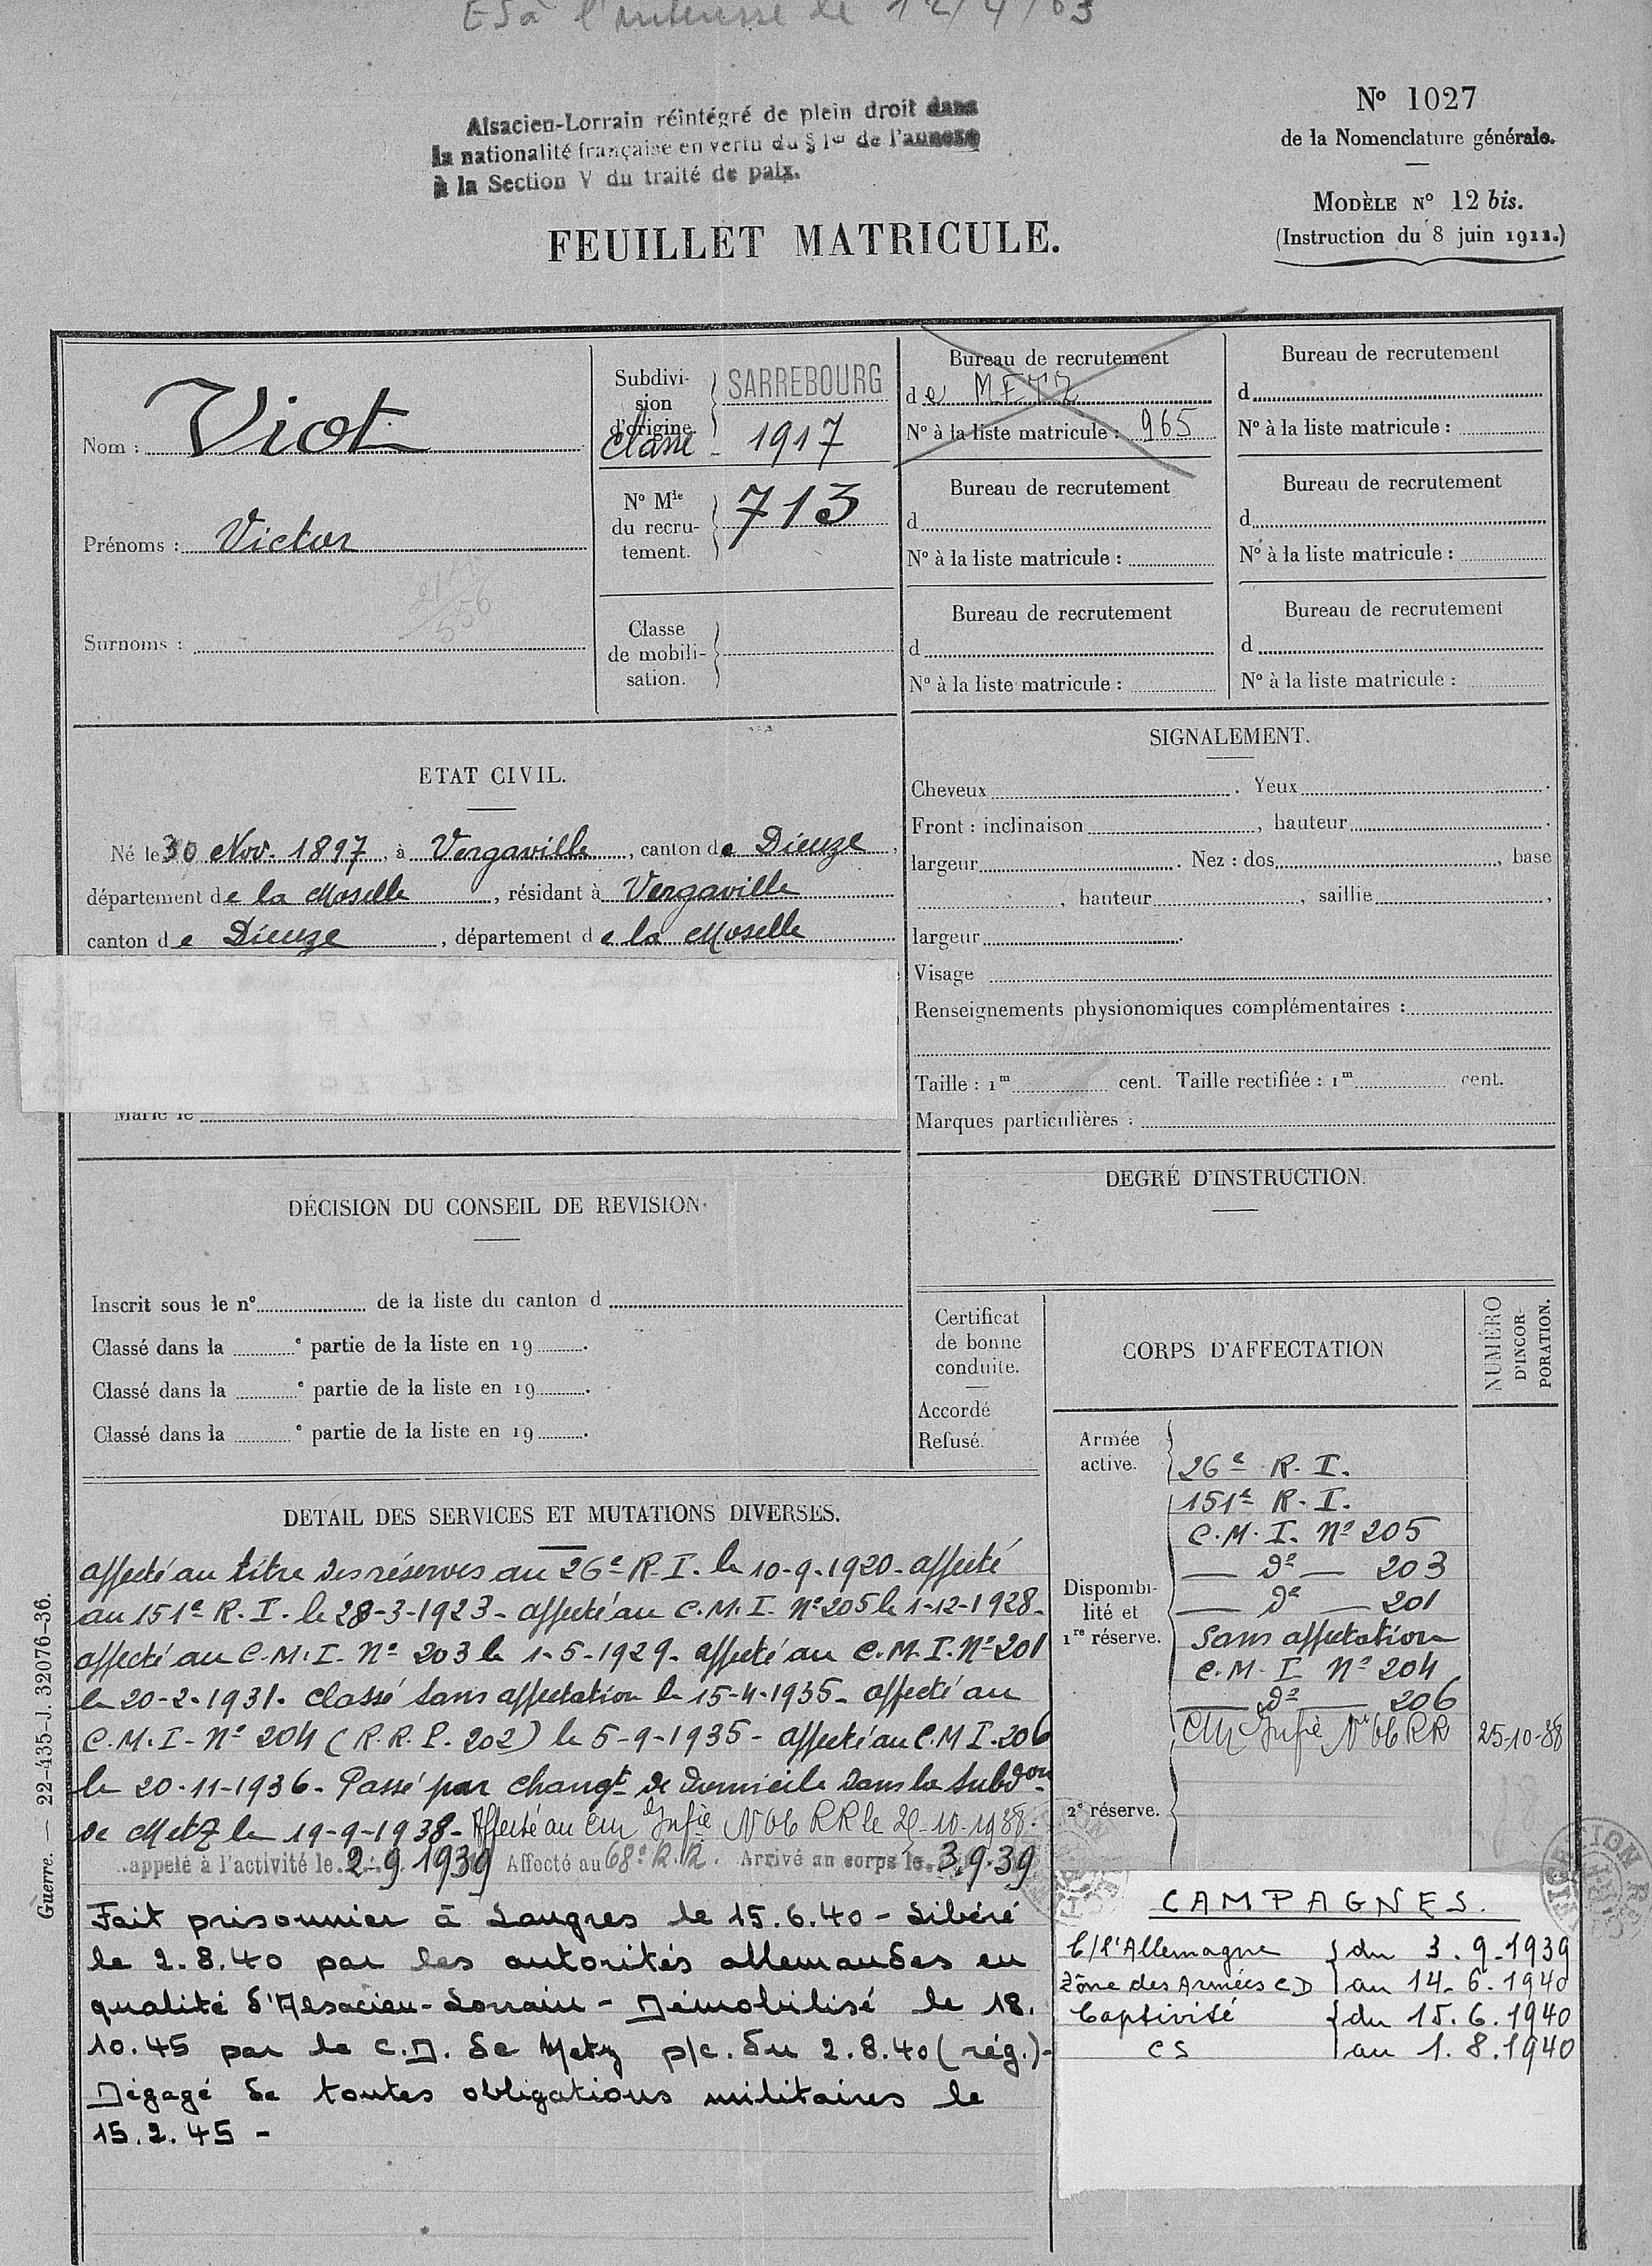 ES à l'intéressé le 12/4/63
Alsacien-Lorrain réintégré de plein droit dans
la nationalité française en vertu du § 1er de l'annexe
à la Section V du traité de paix.
No 1027
de la Nomenclature générale.
MODÈLE No 12 bis.
(Instruction du 8 juin 1911.)
FEUILLET MATRICULE.
Nom : Viot
Prénoms : Victor
556
Surnoms :
Subdivi-
sion
d'origine.
SARREBOURG
Classe - 1917
No Mle
du recru-
tement.
713
Classe
de mobili-
sation.
Bureau de recrutement
de METZ
No à la liste matricule : 965
Bureau de recrutement
d
No à la liste matricule :
Bureau de recrutement
d
No à la liste matricule :
Bureau de recrutement
d
No à la liste matricule :
Bureau de recrutement
d
No à la liste matricule :
Bureau de recrutement
d
No à la liste matricule :
ETAT CIVIL.
Né le 30 Nov. 1897, à Vergaville, canton de Dieuze,
département de la Moselle, résidant à Vergaville
canton de Dieuze, département de la Moselle
Marié le
SIGNALEMENT.
Cheveux . Yeux .
Front : inclinaison , hauteur .
largeur . Nez : dos , base
, hauteur , saillie ,
largeur .
Visage
Renseignements physionomiques complémentaires :
Taille : 1m cent. Taille rectifiée : 1m cent.
Marques particulières :
DÉCISION DU CONSEIL DE REVISION.
Inscrit sous le no de la liste du canton d
Classé dans la e partie de la liste en 19 .
Classé dans la e partie de la liste en 19 .
Classé dans la e partie de la liste en 19 .
DEGRÉ D'INSTRUCTION.
Certificat
de bonne
conduite.
Accordé
Refusé.
CORPS D'AFFECTATION
NUMÉRO
D'INCOR-
PORATION.
Armée
active.
26e R. I.
151e R. I.
C.M.I. No 205
— do — 203
— do — 201
Disponibi-
lité et
1re réserve.
Sans affectation
C.M.I. No 204
— do — 206
CM Infie No 66 RR 25-10-38
2e réserve.
DETAIL DES SERVICES ET MUTATIONS DIVERSES.
affecté au titre des réserves au 26e R.I. le 10-9-1920 - affecté
au 151e R.I. le 28-3-1923 - affecté au C.M.I. No 205 le 1-12-1928 -
affecté au C.M.I. No 203 le 1-5-1929 - affecté au C.M.I. No 201
le 20-2-1931. Classé sans affectation le 15-4-1935 - affecté au
C.M.I. No 204 (R.R.P. 202) le 5-9-1935 - affecté au C.M.I. 206
le 20-11-1936 - Passé par changt de domicile dans la subdon
de Metz le 19-9-1938 - Affecté au CM Infie No 66 RR le 25-10-1938.
Rappelé à l'activité le 2-9 1939 Affecté au 68e R.R. Arrivé au corps le 3.9.39
Fait prisonnier à Langres le 15.6.40 - Libéré
le 2.8.40 par les autorités allemandes en
qualité d'Alsacien-Lorrain - Démobilisé le 18.
10.45 par le C.D. de Metz p/c. du 2.8.40 (rég.) -
Dégagé de toutes obligations militaires le
15.2.45 -
CAMPAGNES.
C/l'Allemagne { du 3.9.1939
Zône des Armées CD au 14.6.1940
Captivité { du 15.6.1940
CS au 1.8.1940
Guerre. — 22-435-J. 32076-36.